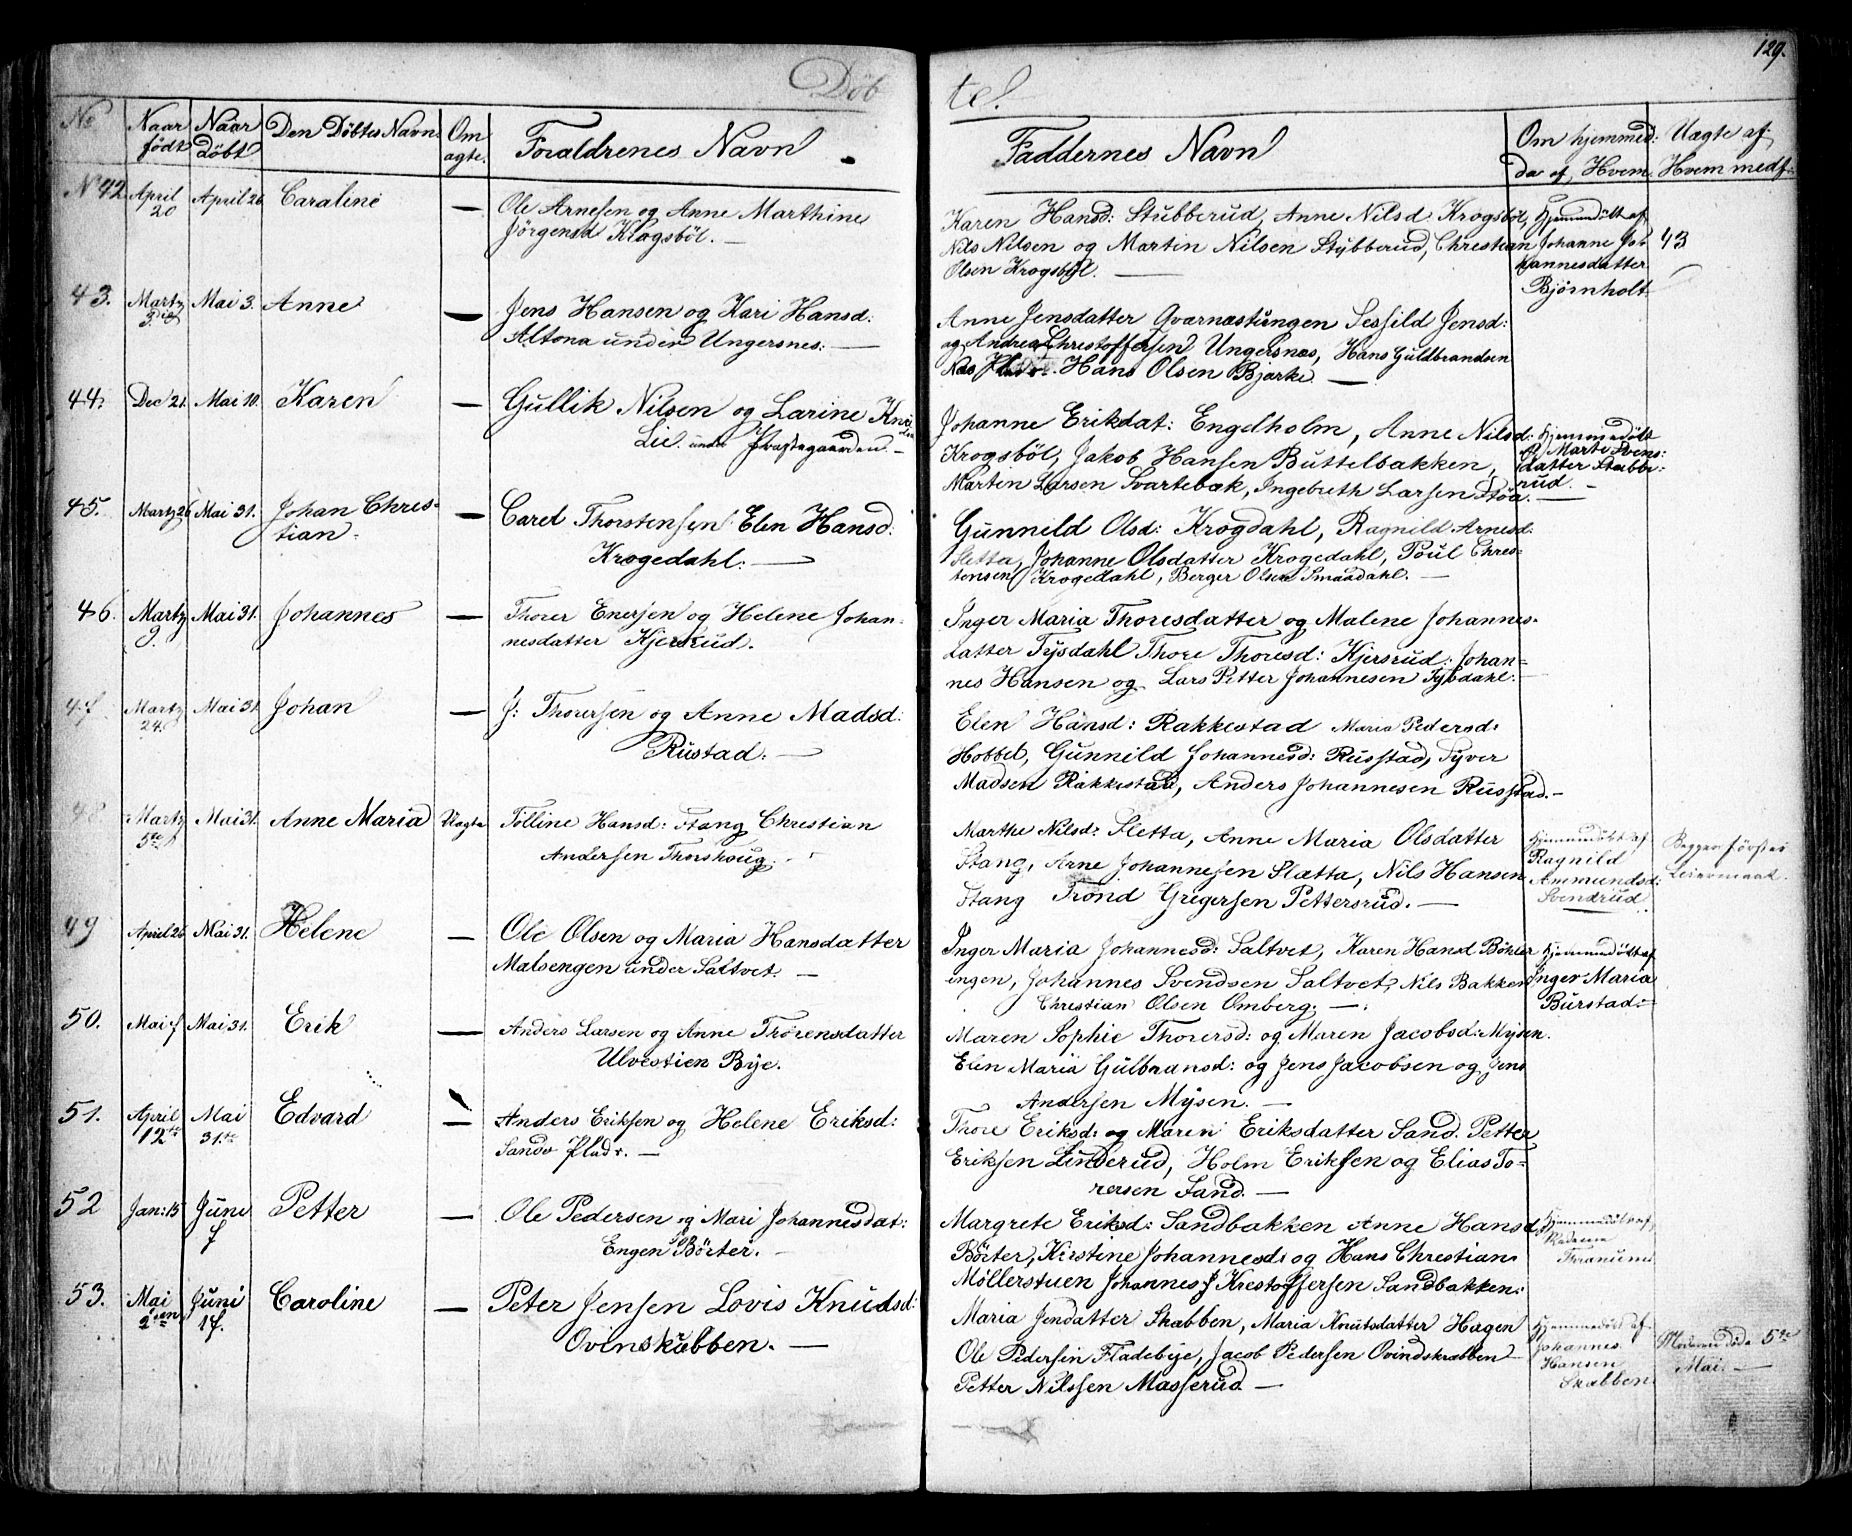 129.
Döb tel.
No
Naar födt
Naar döbt
Den Döbtes Navn
Om ægte.
Foraldrenes Navn
Faddernes Navn
Om hjemmed: da af Hvem.
Uægte af Hvem medf.
N 42 April 20 April 26 Caraline —
Ole Arnesen og Anne Marthine
Jörgensd Krogsböl. —
Karen Hansd: Stubberud, Anne Nilsd Krogsböl,
Nils Nilsen og Martin Nilsen Stybberud, Chrestian
Olsen Krogsböl. —
Hjemmedöbt af
Johanne Jo-
hannesdatter
Bjørnholt
43
43. Martz Mai 3. Anne —
Jens Hansen og Kari Hansd:
Altona under Ungersnes: —
Anne Jensdatter Qvarnæstungen Sessild Jensd:
og Andreas Chrestoffersen Ungersnæs, Hans Guldbrandsen
Næs Hans Olsen Bjærke. —
44. Dec 21. Mai 10. Karen —
Gullik Nilsen og Larine
Lie. under Præstegaarden. —
Johanne Erikdat: Engelholm, Anne Nilsd:
Krogsböl, Jakob Hansen Buttelbakken,
Marten Larsen Svartebæk, Ingebreth Larsen Stöa. —
Hjemmedöbt
af Marte Svens:
datter Stubbe:
rud. —
45. Martz 26 Mai 31. Johan Chres-
tian. —
Carel Thorstensen Elen Hansd:
Krogedahl. —
Gunneld Olsd: Krogdahl, Ragneld Arnesd:
Sletta, Johanne Olsdatter Krogedahl, Poul Chres-
tensen Krogedahl, Berger Olsen Smaadahl. —
46. Martz 9. Mai 31. Johannes —
Thorer Enersen og Helene Johan-
nesdatter Kjersrud.
Inger Maria Thoresdatter og Malene Johannes-
datter Tysdahl Thore Thoresd: Kjersrud: Johan-
nes Hansen og Lars Petter Johannesen Tysdahl.
47. Martz 24. Mai 31. Johan —
J: Thorersen og Anne Madsd:
Rustad: —
Elen Hansd: Rakkestad Maria Pedersd:
Hobbel, Gunnild Johannesd: Russtad, Syver
Madsen Rakkestad, Anders Johannesen Russtad. —
48 Martz 5te Mai 31. Anne Maria Uægte
Tolline Hansd: Stang Chrestian
Andersen Thorshoug.
Marthe Nilsd: Sletta, Anne Maria Olsdatter
Stang, Arne Johannesen Slætta, Nils Hansen
Stang Trond Gregersen Pettersrud. —
Hjemmedöbt af
Ragnild
Ammundsd:
Svendrud
Begges förste
Leiermaal.
49 April 26 Mai 31. Helene —
Ole Olsen og Maria Hansdatter
Malsengen under Saltvet. —
Inger Maria Johannesd: Saltvet, Karen Hansd Böhler
engen, Johannes Svendsen Saltvet, Nils Bakken
Chrestian Olsen Omberg. —
Hjemmedöbt af
Inger Maria
Burstad: —
50. Mai Mai 31. Erik —
Anders Larsen og Anne Trörensdatter
Ulvestien Bye.
Maren Sophie Thorersd: og Maren Jacobsd: Mysen.
Elen Maria Gulbransd: og Jens Jacobsen og Jens
Andersen Mysen. —
51. April 12te Mai 31.te Edvard —
Anders Eriksen og Helene Eriksd:
Sando Pladr. —
Thore Eriksd: og Maren Eriksdatter Sand. Petter
Eriksen Linderud, Holm Eriksen og Elias To-
rersen Sand. —
52 Jan: 15 Juni 7 Petter —
Ole Pedersen og Mari Johannesdat:
Engen Börter. —
Margrete Eriksd: Sandbakken Anne Hansd:
Börter, Kirstine Johannesd: og Hans Chrestian
Möllerstuen Johannes Krestoffersen Sandbakken:
Hjemmedöbt af
53. Mai 2den Juni 17. Caroline —
Peter Jensen Lovis Knudsd:
Ovinskubben. —
Maria Jendatter Skabben, Maria Knutsdatter Hagen
Ole Pedersen Fladebye, Jacob Pedersen Ovindskabben
Petter Nilssen Masserud —
Hjemmedöbt af
Johannes
Hansen
Skabben
Moderen döde 5te
Mai. —